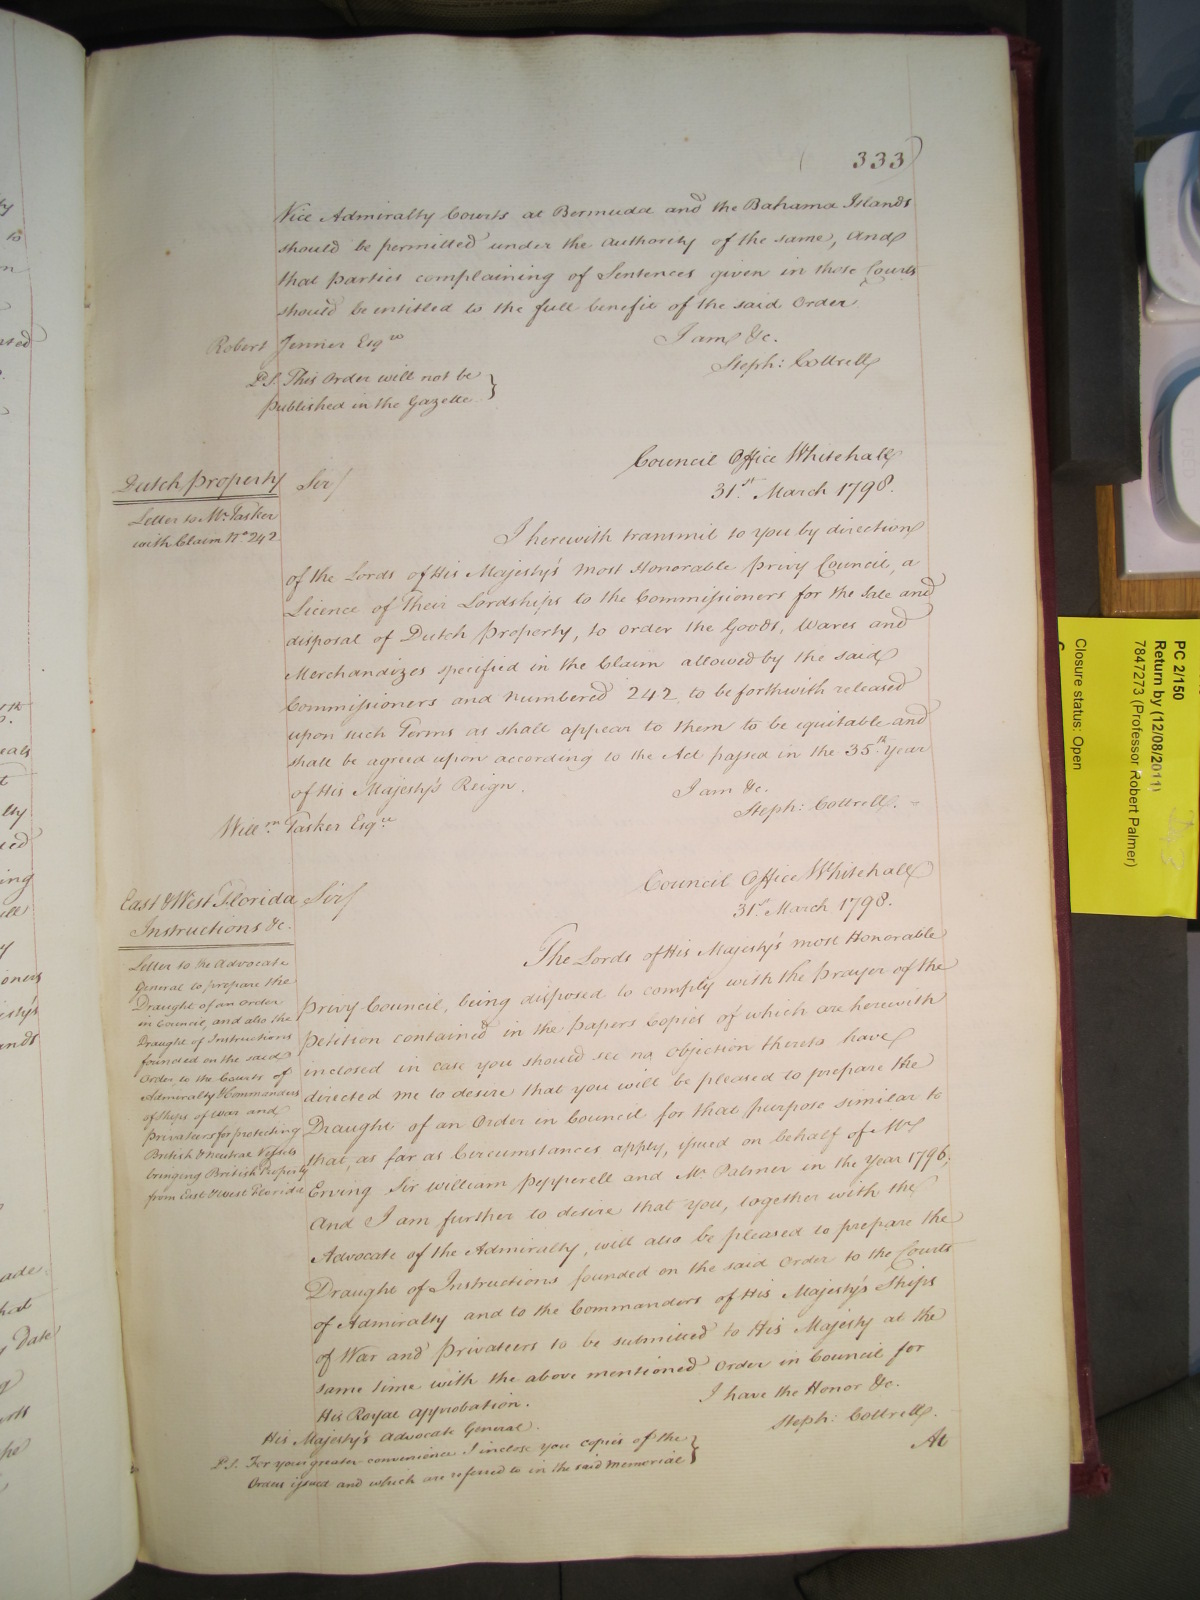 333
Vice Admiralty Courts at Bermuda and the Bahama Islands
should be permitted under the authority of the same, and
that parties complaining of Sentences given in those Courts
should be entitled to the full benefit of the said Order
I am &c.
Robert Jenner Esqre
Steph: Cottrell
P.S. This Order will not be
published in the Gazette
Council Office Whitehall
31st March 1798.
Dutch Property
Letter to Mr. Tasker
with Claim No. 242
Sir/
I herewith transmit to you by direction
of the Lords of His Majesty's most Honorable Privy Council, a
Licence of Their Lordships to the Commissioners for the Sale and
disposal of Dutch Property, to order the Goods, Wares and
Merchandizes specified in the Claim allowed by the said
Commissioners and numbered 242 to be forthwith released
upon such Terms as shall appear to them to be equitable and
shall be agreed upon according to the Act passed in the 35th Year
of His Majesty's Reign.
I am &c.
Steph: Cottrell.
Willm. Tasker Esqre
Council Office Whitehall
31st March 1798.
East & West Florida
Instructions &c.
Letter to the Advocate
General to prepare the
Draught of an Order
in Council, and also the
Draught of Instructions
founded on the said
Order to the Courts of
Admiralty & Commanders
of Ships of War and
Privateers for protecting
British & Neutral Vessels
bringing British Property
from East & West Florida
Sir/
The Lords of His Majesty's most Honorable
Privy Council, being disposed to comply with the Prayer of the
Petition contained in the Papers Copies of which are herewith
inclosed in case you should see no objection thereto have
directed me to desire that you will be pleased to prepare the
Draught of an Order in Council for that purpose similar to
that, as far as Circumstances apply, issued on behalf of Mr
Erving Sir William Pepperell and Mr. Palmer in the Year 1796;
And I am further to desire that you, together with the
Advocate of the Admiralty, will also be pleased to prepare the
Draught of Instructions founded on the said Order to the Courts
of Admiralty and to the Commanders of His Majesty's Ships
of War and Privateers to be submitted to His Majesty at the
same time with the above mentioned Order in Council for
His Royal approbation.
I have the Honor &c.
Steph: Cottrell.
His Majesty's Advocate General.
P.S. For your greater convenience I inclose you copies of the
Orders issued and which are referred to in the said Memorial
At
PC 2/150
Return by (12/08/2011)
7847273 (Professor Robert Palmer)
Closure status: Open